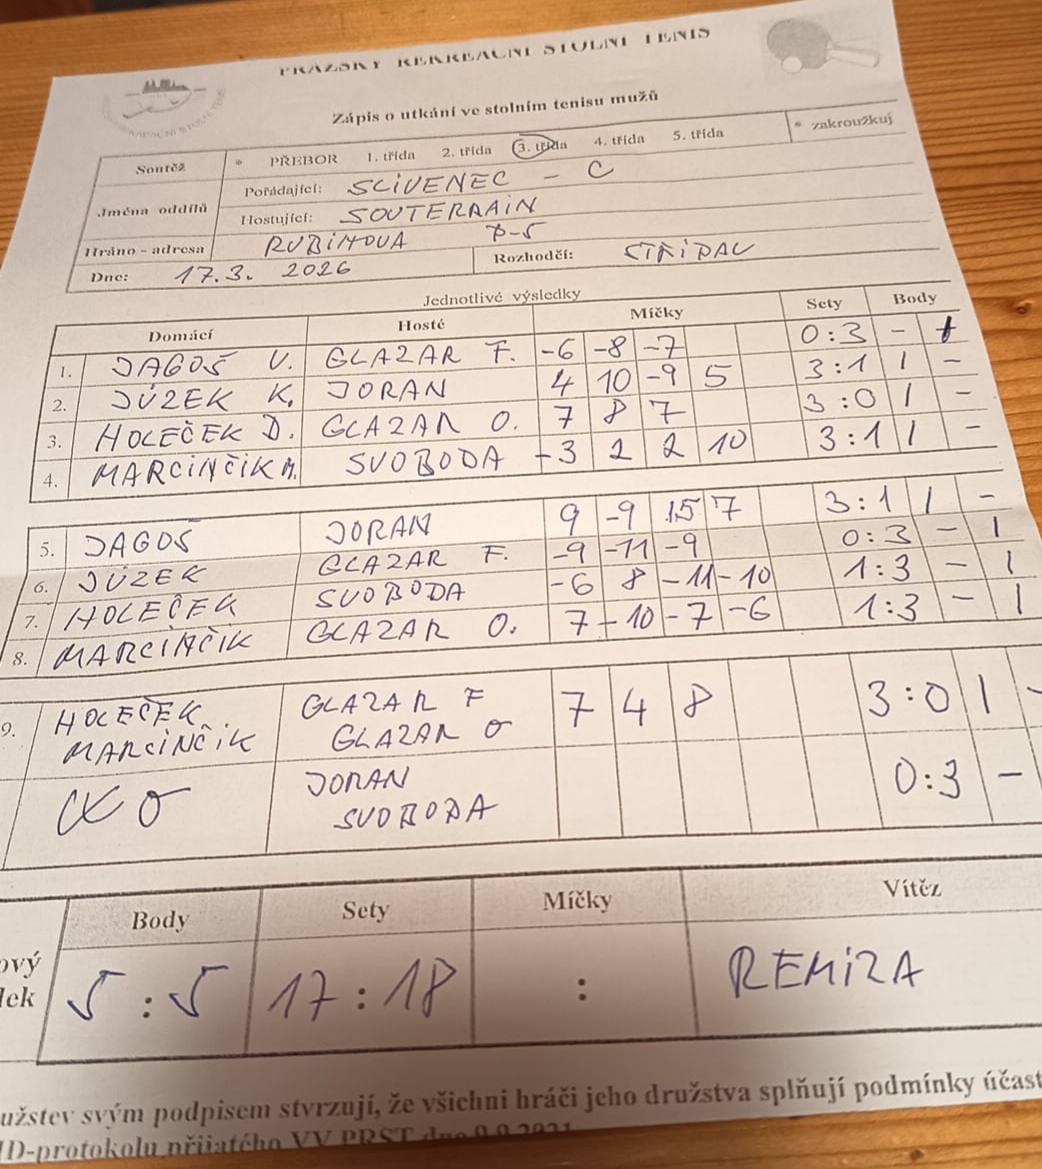 PRAŽSKÝ REKREAČNÍ STOLNÍ TENIS
Zápis o utkání ve stolním tenisu mužů
Soutěž * PŘEBOR 1. třída 2. třída 3. třída 4. třída 5. třída * zakroužkuj
Jména oddílů Pořádající: SLIVENEC - C
Hostující: SOUTERRAIN
Hráno - adresa RUBÍNOVA P-5
Dne: 17.3. 2026 Rozhodčí: STŘÍDAV
Jednotlivé výsledky
Domácí Hosté Míčky Sety Body
1. JAGOŠ V. GLAZAR F. -6 -8 -7 0:3 - 1
2. JŮZEK K. JORAN 4 10 -9 5 3:1 1 -
3. HOLEČEK D. GLAZAR O. 7 8 7 3:0 1 -
4. MARCINČIK M. SVOBODA -3 2 2 10 3:1 1 -
5. JAGOŠ JORAN 9 -9 15 7 3:1 1 -
6. JŮZEK GLAZAR F. -9 -11 -9 0:3 - 1
7. HOLEČEK SVOBODA -6 8 -11 -10 1:3 - 1
8. MARCINČIK GLAZAR O. 7 -10 -7 -6 1:3 - 1
9. HOLEČEK GLAZAR F 7 4 8 3:0 1 -
MARCINČIK GLAZAR O
JORAN 0:3 -
SVOBODA
Body Sety Míčky Vítěz
5:5 17:18 : REMIZA
svým podpisem stvrzují, že všichni hráči jeho družstva splňují podmínky
přijatého VV PRST dne 9.9.2021